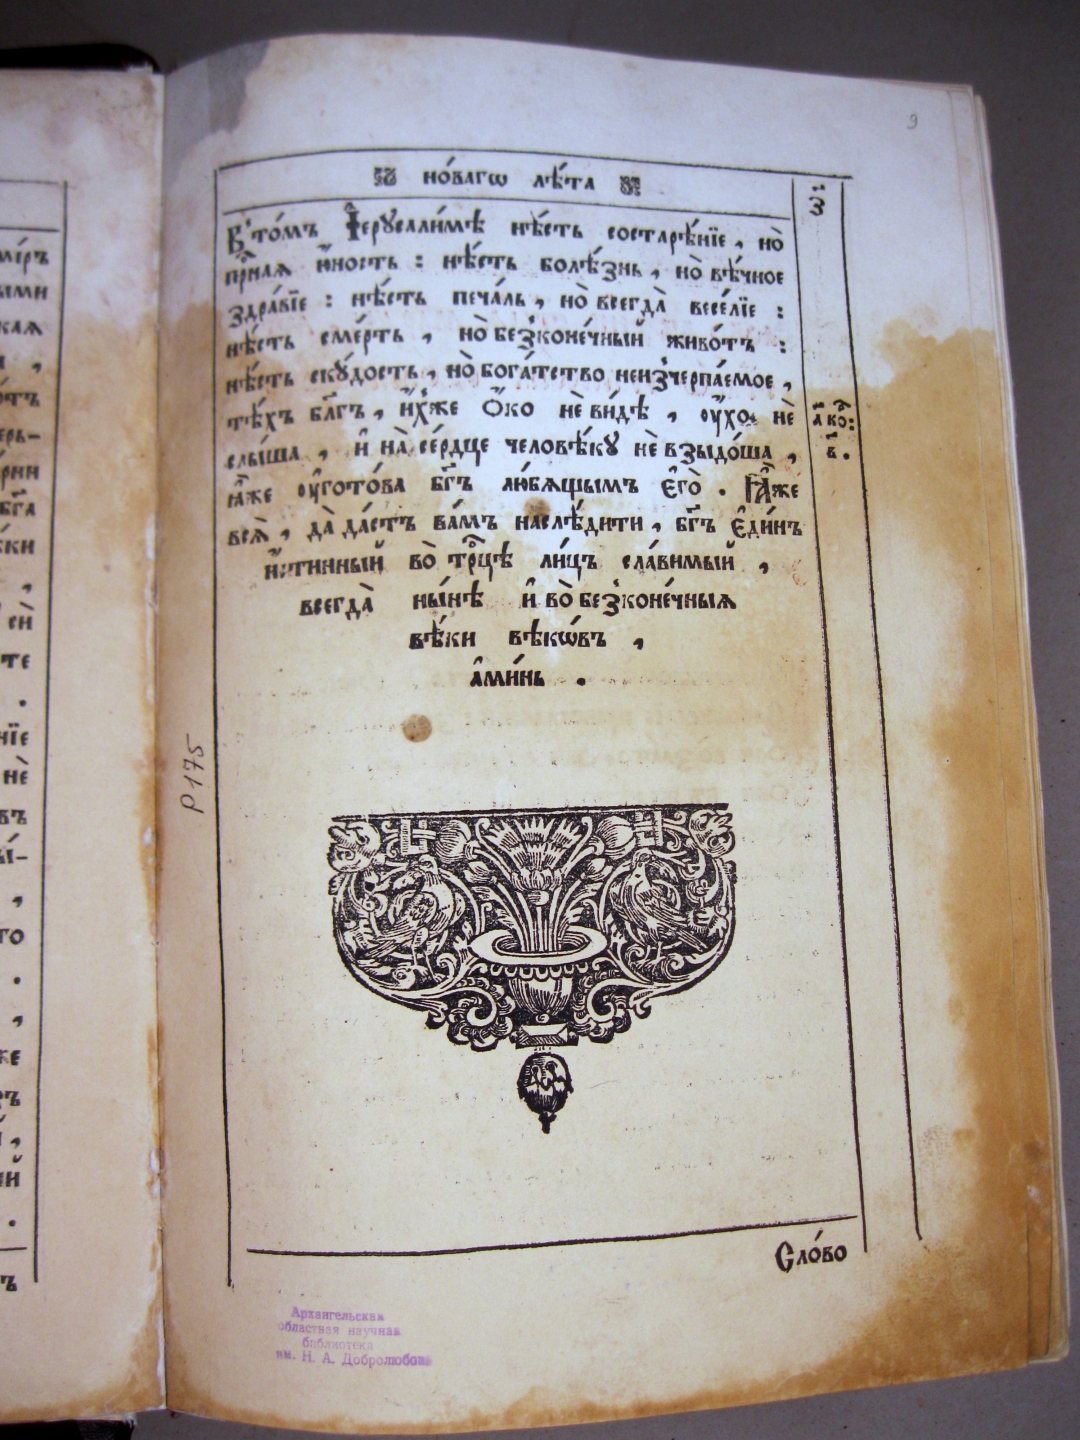 новагѡ лѣ́та
з҃
Въ то́мъ І҆ерꙋсали́мѣ нѣ́сть состарѣ́нїе, но̀
при́ѡая ю҆́ность : нѣ́сть болѣ́знь, но̀ вѣ́чное
здра́вїе : нѣ́сть печа́ль, но̀ всегда̀ весе́лїе :
нѣ́сть сме́рть, но̀ безконе́чный живо́тъ :
нѣ́сть скꙋ́дость, но̀ бога́тство неизчерпа́емое,
тѣ́хъ бл҃гъ, и҆́хже О҆́ко не ви́дѣ, ᲂу҆́хо нѐ
слы́ша, и҆ на̀ се́рдце человѣ́кꙋ нѐ взыдо́ша,
ꙗ҆̀же ᲂу҆гото́ва бг҃ъ лю́бящымъ є҆го̀. Ꙗ҆̀же
всѧ̑, да̀ да́стъ ва́мъ наслѣ́дити, бг҃ъ є҆ди́нъ
и҆́стинный во̀ трⷪ҇цѣ ли́цъ сла́вимый,
всегда̀ ны́нѣ и҆ во̀ безконе́чныѧ
вѣ́ки вѣкѡ́въ,
а҆ми́нь.
Сло́во
Р175
Архангельская
областная научная
библиотека
им. Н. А. Добролюбова